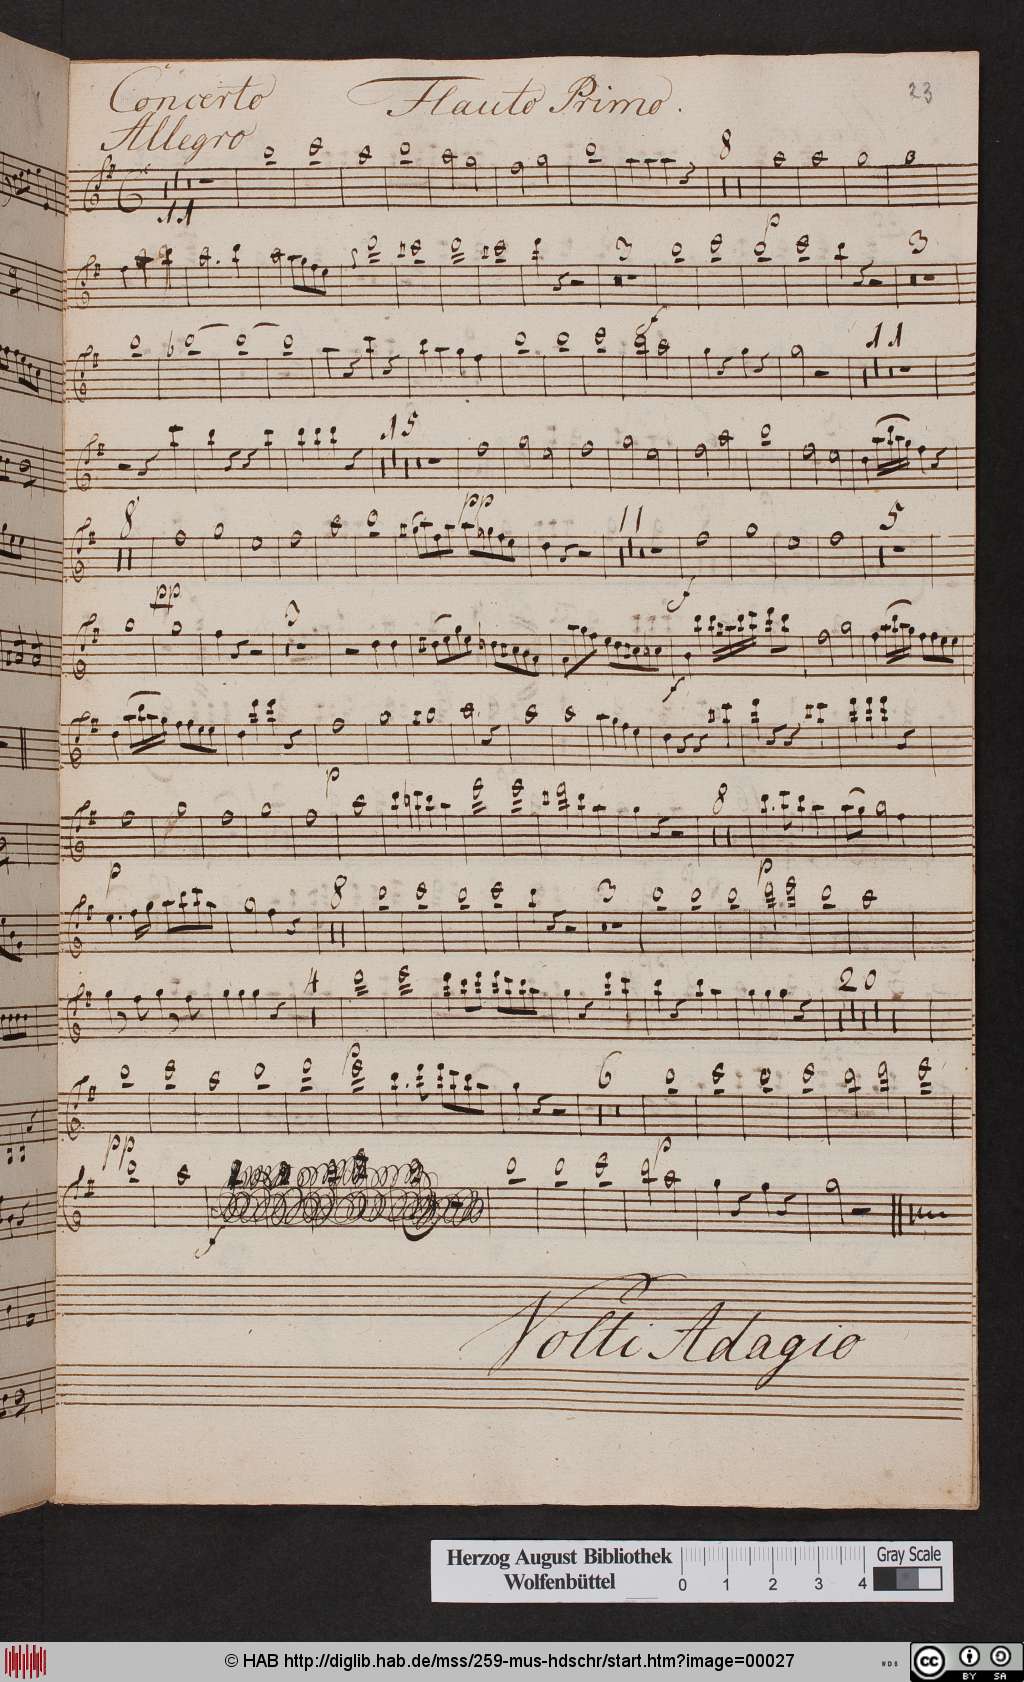 Concerto Flauto Primo. 23
Allegro
11 8
p
3 3
f
11
15
8 pp
pp 11 f 5
3
f
p
p 8
8 p 3
4 20
p
pp 6
f p
Volti Adagio
Herzog August Bibliothek
Wolfenbüttel
0 1 2 3 4
Gray Scale
© HAB http://diglib.hab.de/mss/259-mus-hdschr/start.htm?image=00027
WDB
cc BY SA